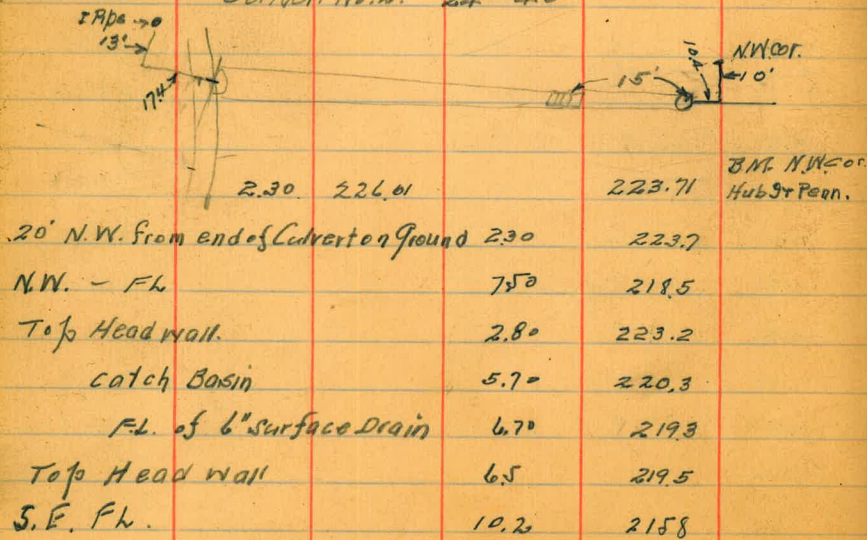 I Pipe
13'
17.4
15'
10.2
N.W. cor.
10'
2.30 226.01 223.71 B.M. N.W. cor.
Hub 9+ Penn.
20' N.W. from end of Culvert on Ground 2.30 223.7
N.W. - FL 7.50 218.5
Top Head wall. 2.80 223.2
catch Basin 5.70 220.3
F.L. of 6" Surface Drain 6.70 219.3
Top Head wall 6.5 219.5
S.E. FL. 10.2 215.8